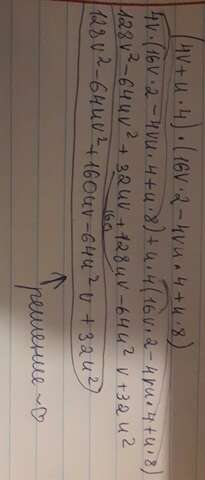 (4v+u.4).(16v.2-4vu.4+u.8)
4v.(16v.2-4vu.4+u.8)+u.4(16v.2-4vu.4+u.8)
128v²-64uv²+32uv+128uv-64u²v+32u²
160
128v²-64uv²+160uv-64u²v+32u²
решение~♡